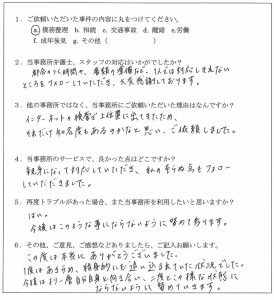 1．ご依頼いただいた事件の内容に丸をつけてください。
a. 債務整理 b. 相続 c. 交通事故 d. 離婚 e.労働
f. 成年後見 g. その他（　　　）
2．当事務所弁護士、スタッフの対応はいかがでしたか？
都合のつく時間や、書類の準備など、1人では対応しきれない
ところもフォローしていただき、大変感謝しております。
3．他の事務所ではなく、当事務所にご依頼いただいた理由はなんですか？
インターネットの検索で上位に出てきたため、
それだけ知名度もあるのかなと思い、ご依頼しました。
4．当事務所のサービスで、良かった点はどこですか？
親身になって対応していただき、私の至らぬ点もフォロー
していただきました。
5．再度トラブルがあった場合、また当事務所を利用したいと思いますか？
はい。
今後はこのような事にならないように努めて参ります。
6．その他、ご意見、ご感想などありましたら、ご記入お願いします。
この度は本当にありがとうございました。
1度はあきらめ、精神的にも追い込まれていた状況でした。
今後はより一層自分自身と向き合い、二度とこの様な状態に
ならないように努めていきます。